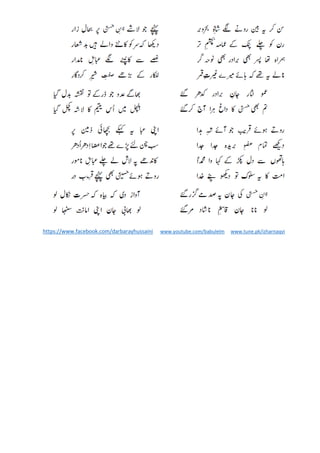 سن کر یہ بین رونے لگے شاہِ بحروبر پہنچے جو لاشے ابنِ حسنؑ پر بحال زار
رن کو چلے پٹک کے عمامہ بچشمِ تر دیکھا کہ سر کو کاٹنے والے ہیں بد شعار
ہمراہ تھا پسر بھی برادر بھی نوحہ گر غصے سے کانپنے لگے عباسِ نامدار
نالے یہ تھے کہ ہائے میرے غیرتِ قمر للکار کے بڑھے صفتِ شیرِ کردگار
عمو نثار جان برادر کدھر گئے بھاگے عدو جو ڈر کے تو نقشہ بدل گیا
تم بھی حسنؑ کا داغ ہرا آج کر گئے ہلچل میں اُس یتیم کا لاشہ کچل گیا
روتے ہوئے قریب جو آئے شہِ ہدا اپنی عبا یہ کہکے بچھائی زمین پر
دیکھے تمام عضو بریدہ جدا جدا سب چن لئے پڑے تھے جو اعضا ادھر اُدھر
ہاتھوں سے دل پکڑ کے کہا وا محمداؐ کاندھے پہ لاش لے چلے عباسِ نامور
امت کا یہ سلوک تو دیکھو پئے خدا روتے ہوئے حسینؑ بھی پہنچے قریبِ در
ابنِ حسنؑ کی جان پہ صدمے گزر گئے آواز دی کہ بیاہ کہ حسرت نکال لو
لو نانا جان قاسمِ ناشاد مر گئے لو بھابی جان اپنی امانت سنبھالو
https://www.facebook.com/darbarayhussaini www.youtube.com/babuleim www.tune.pk/izharnaqvi